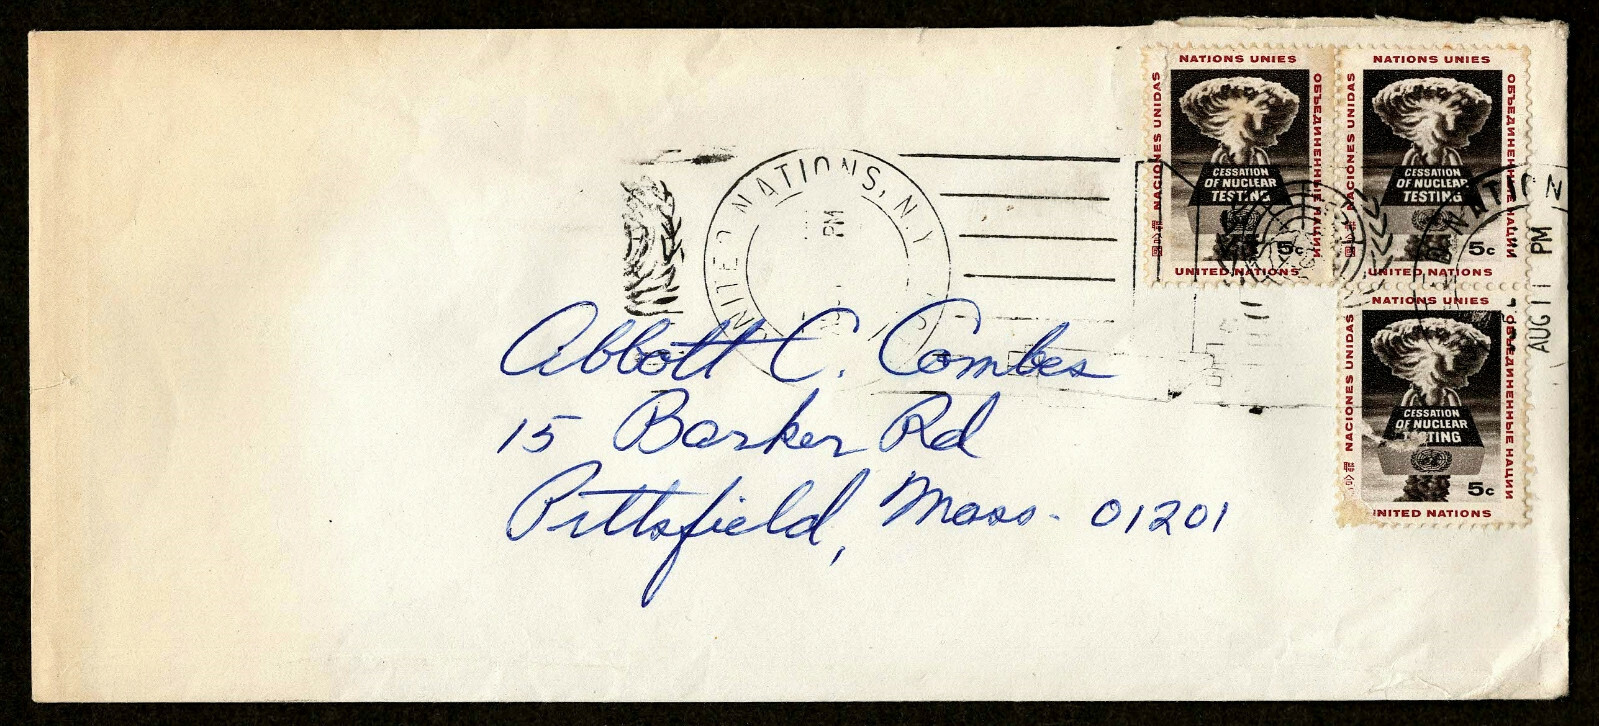 NATIONS UNIES
NACIONES UNIDAS
ОБЪЕДИНЕННЫЕ НАЦИИ
CESSATION
OF NUCLEAR
TESTING
5c
UNITED NATIONS
NATIONS UNIES
NACIONES UNIDAS
ОБЪЕДИНЕННЫЕ НАЦИИ
CESSATION
OF NUCLEAR
TESTING
5c
UNITED NATIONS
UNITED NATIONS, N.Y.
PM
NATION
AUG 11 PM
NATIONS UNIES
NACIONES UNIDAS
ОБЪЕДИНЕННЫЕ НАЦИИ
CESSATION
OF NUCLEAR
TESTING
5c
UNITED NATIONS
Abbott C. Combes
15 Barker Rd
Pittsfield, Mass. 01201